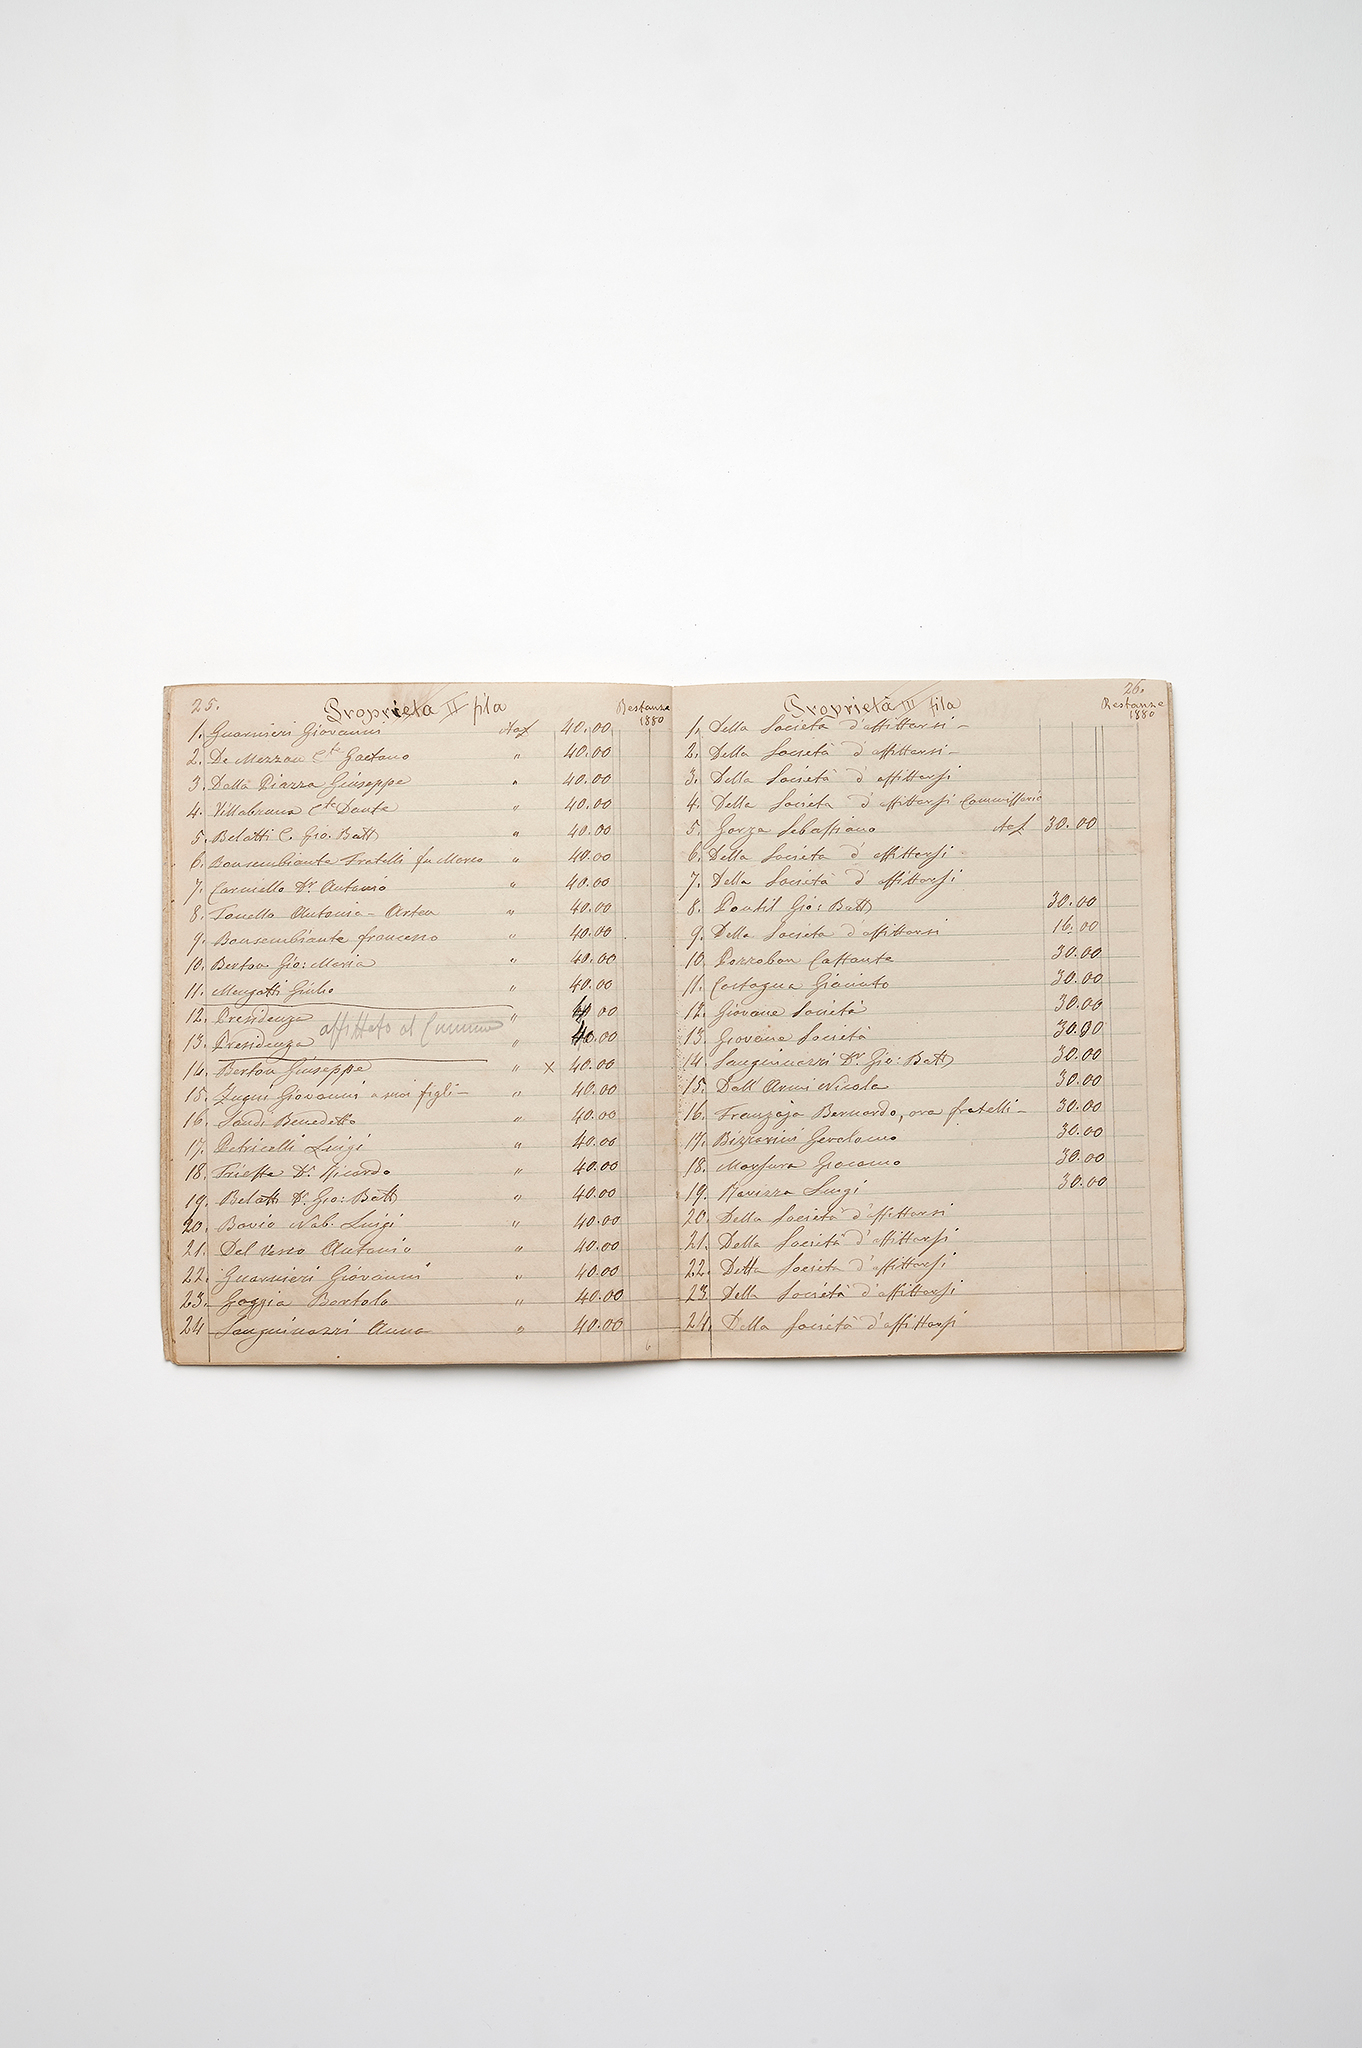 25.
Proprietà II fila
Restanze
1880
1. Guarnieri Giovanni 40.00
2. De Mezzan Cte Gaetano " 40.00
3. Dalla Piazza Giuseppe " 40.00
4. Villabruna Cte Dante " 40.00
5. Belatti C. Gio. Batt " 40.00
6. Bonsembiante Fratelli fu Marco " 40.00
7. Carniello Dr. Antonio " 40.00
8. Antonia - Arten " 40.00
9. Bonsembiante Francesco " 40.00
10. Berton Gio: Maria " 40.00
11. Mengatti Giulio " 40.00
12. Presidenza " 40.00
affittato al Comune
13. Presidenza " 40.00
14. Berton Giuseppe " x 40.00
15. Zugni Giovanni a suoi figli - " 40.00
16. Sandi Benedetto " 40.00
17. Petricelli Luigi " 40.00
18. Trieste Dr. Ricardo " 40.00
19. Belatti Dr. Gio: Batt " 40.00
20. Bovio Nob. Luigi " 40.00
21. Dal Vesco Antonio " 40.00
22. Guarnieri Giovanni " 40.00
23. Goggia Bortolo " 40.00
24 Sanguinazzi Anna " 40.00
6
26.
Proprietà III fila
Restanze
1880
1. Della Società d'affittarsi -
2. Della Società d'affittarsi -
3. Della Società d'affittarsi
4. Della Società d'affittarsi
5. Gorza Sebastiano 30.00
6. Della Società d'affittarsi
7. Della Società d'affittarsi
8. Pontil Gio: Batt 30.00
9. Della Società d'affittarsi 16.00
10. Pozzobon 30.00
11. Castagna Giacinto 30.00
12. Giovane Società 30.00
13. Giovane Società 30.00
14. Sanguinazzi Dr Gio: Batt 30.00
15. Dall'Armi Nicola 30.00
16. Franzoja Bernardo, ora fratelli - 30.00
17. Bizzarini Gerolamo 30.00
18. Marsura Giacomo 30.00
19. Ravizza Luigi 30.00
20. Della Società d'affittarsi
21. Della Società d'affittarsi
22. Detta Società d'affittarsi
23 Della Società d'affittarsi
24. Della Società d'affittarsi